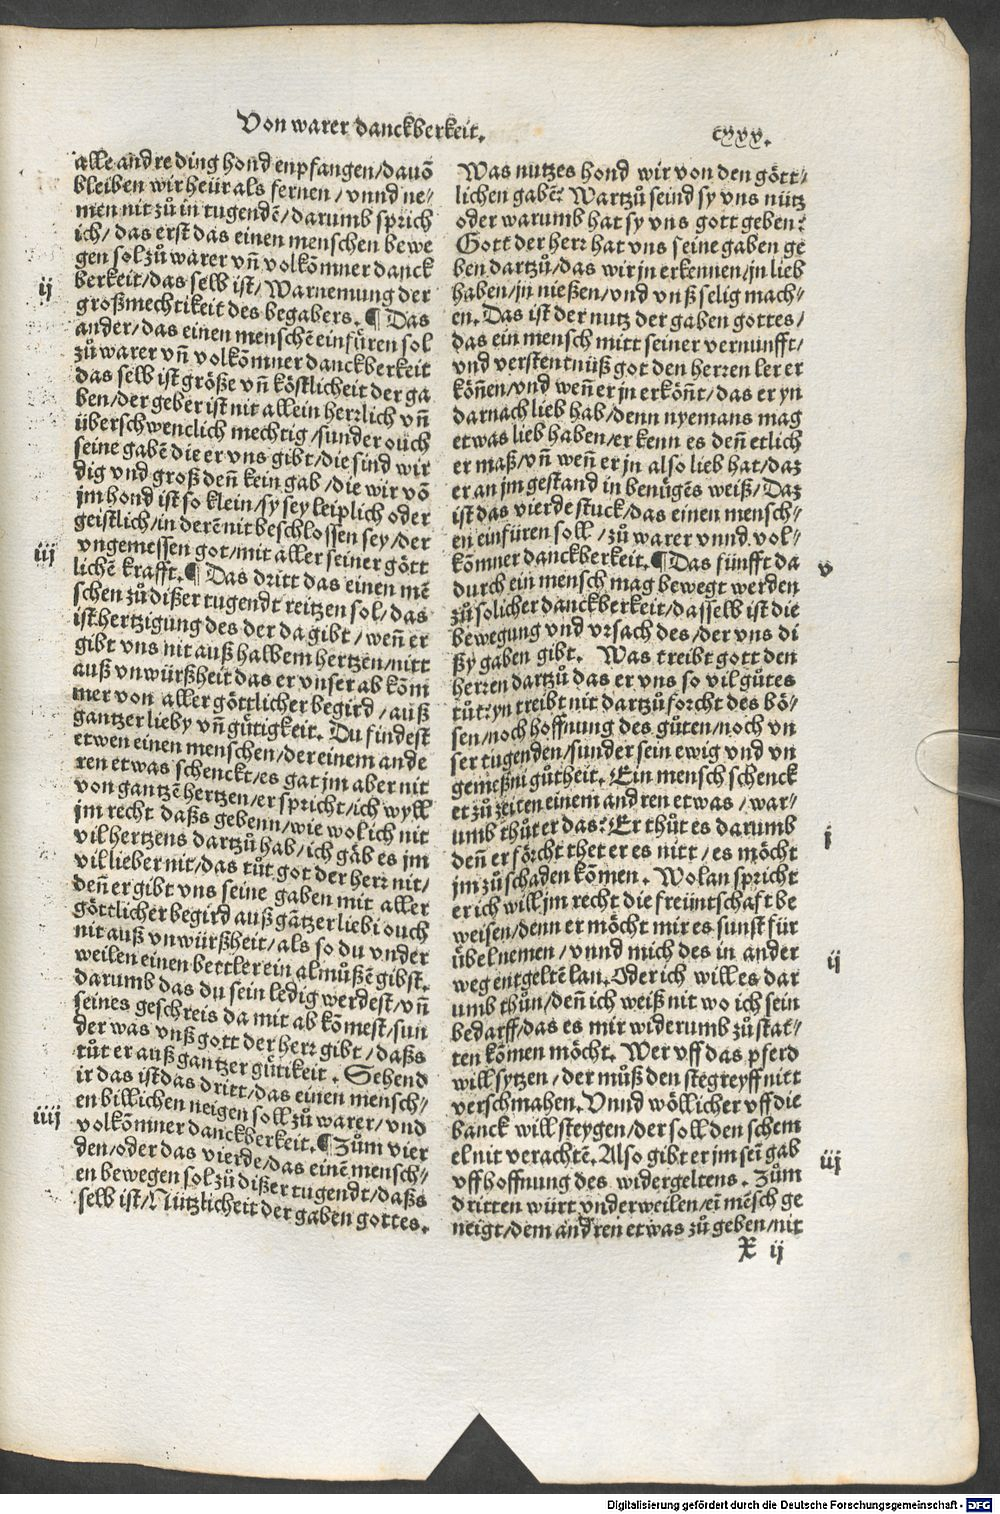 Von warer danckberkeit.
cxxx.
alle andre ding hond enpfangen/dauō
bleiben wir heür als fernen/vnnd ne-
men nit zů in tugendē/darumb sprich
ich/das erst das einen menschen bewe
gen sol zů warer vn̄ volkōmner danck
berkeit/das selb ist/Warnemung der
großmechtikeit des begabers.¶Das
ij
ander/das einen menschē einfüren sol
zů warer vn̄ volkōmner danckberkeit
das selb ist größe vn̄ köstlicheit der ga
ben/der geber ist nit allein herrlich vn̄
überschwenclich mechtig/sunder ouch
seine gabē die er vns gibt/die sind wir
dig vnd groß den̄ kein gab/die wir vō
jm hond ist so klein/sy sey leiplich oder
geistlich/in derē nit beschlossen sey/der
vngemessen got/mit aller seiner gött
lichē krafft.¶Das dritt das einen mē
iij
schen zů dißer tugendt reitzen sol/das
ist hertzigung des der da gibt/wen̄ er
gibt vns nit auß halbem hertzen/nitt
auß vnwürßheit das er vnser ab kōm
mer von aller göttlicher begird/auß
gantzer lieby vn̄ gütigkeit. Du findest
etwen einen menschen/der einem ande
ren etwas schenckt/es gat jm aber nit
von gantzē hertzen/er spricht/ich wyll
jm recht daßs gebenn/wie wol ich nit
vil hertzens dartzů hab/ich gäb es jm
vil lieber nit/das tůt got der herr nit/
den̄ er gibt vns seine gaben mit aller
göttlicher begird auß gātzer liebi ouch
nit auß vnwürßheit/als so du vnder
weilen einen bettler ein almůßē gibst.
darumb das du sein ledig werdest/vn̄
seines geschreis da mit ab kōmest/sun
der was vnß gott der herr gibt/daßs
tůt er auß gantzer gütikeit. Sehend
ir das ist das dritt/das einen mensch-
en billichen neigen soll zů warer/vnd
volkōmner danckberkeit.¶Zům vier
iiij
den/oder das vierde/das einē mensch-
en bewegen sol zů dißer tugendt/daßs
selb ist/Nützlicheit der gaben gottes.
Was nutzes hond wir von den gött-
lichen gabē? Wartzů seind sy vns nütz
oder warumb hat sy vns gott geben?
Gott der herr hat vns seine gaben ge
ben dartzů/das wir jn erkennen/jn lieb
haben/jn nießen/vnd vnß selig mach-
en. Das ist der nutz der gaben gottes/
das ein mensch mitt seiner vernunfft/
vnd verstentnüß got den herren ler er
kön̄en/vnd wen̄ er jn erkön̄t/das er yn
darnach lieb hab/denn nyemans mag
etwas lieb haben/er kenn es den̄ etlich
er maß/vn̄ wen̄ er jn also lieb hat/daz
er an jm gestand in benügēs weiß/Daz
ist das vierde stuck/das einen mensch-
en einfüren soll/zů warer vnnd vol-
kōmner danckberkeit.¶Das fünfft da
v
durch ein mensch mag bewegt werden
zů solicher danckberkeit/dasselb ist die
bewegung vnd vrsach des/der vns di
ßy gaben gibt. Was treibt gott den
herren dartzů das er vns so vil gůtes
tůt?yn treibt nit dartzů forcht des bö-
sen/noch hoffnung des gůten/noch vn
ser tugenden/sunder sein ewig vnd vn
gemeßni gůtheit. Ein mensch schenck
et zů zeiten einem andren etwas/war-
umb thůt er das? Er thůt es darumb
j
den̄ er förcht thet er es nitt/es möcht
jm zů schaden kōmen. Wolan spricht
er ich will jm recht die freüntschaft be
weisen/denn er möcht mir es sunst für
übel nemen/vnnd mich des in ander
ij
weg entgeltē lan. Oder ich will es dar
umb thůn/den̄ ich weiß nit wo ich sein
bedarff/das es mir widerumb zů stat-
ten kōmen möcht. Wer vff das pferd
will sytzen/der můß den stegreyff nitt
verschmahen. Vnnd wöllicher vff die
banck will steygen/der soll den schem
el nit verachtē. Also gibt er jm sein̄ gab
iij
vff hoffnung des widergeltens. Zům
dritten würt vnderweilen/ein̄ mēsch ge
neigt/dem andren etwas zů geben/nit
X ij
Digitalisierung gefördert durch die Deutsche Forschungsgemeinschaft - DFG